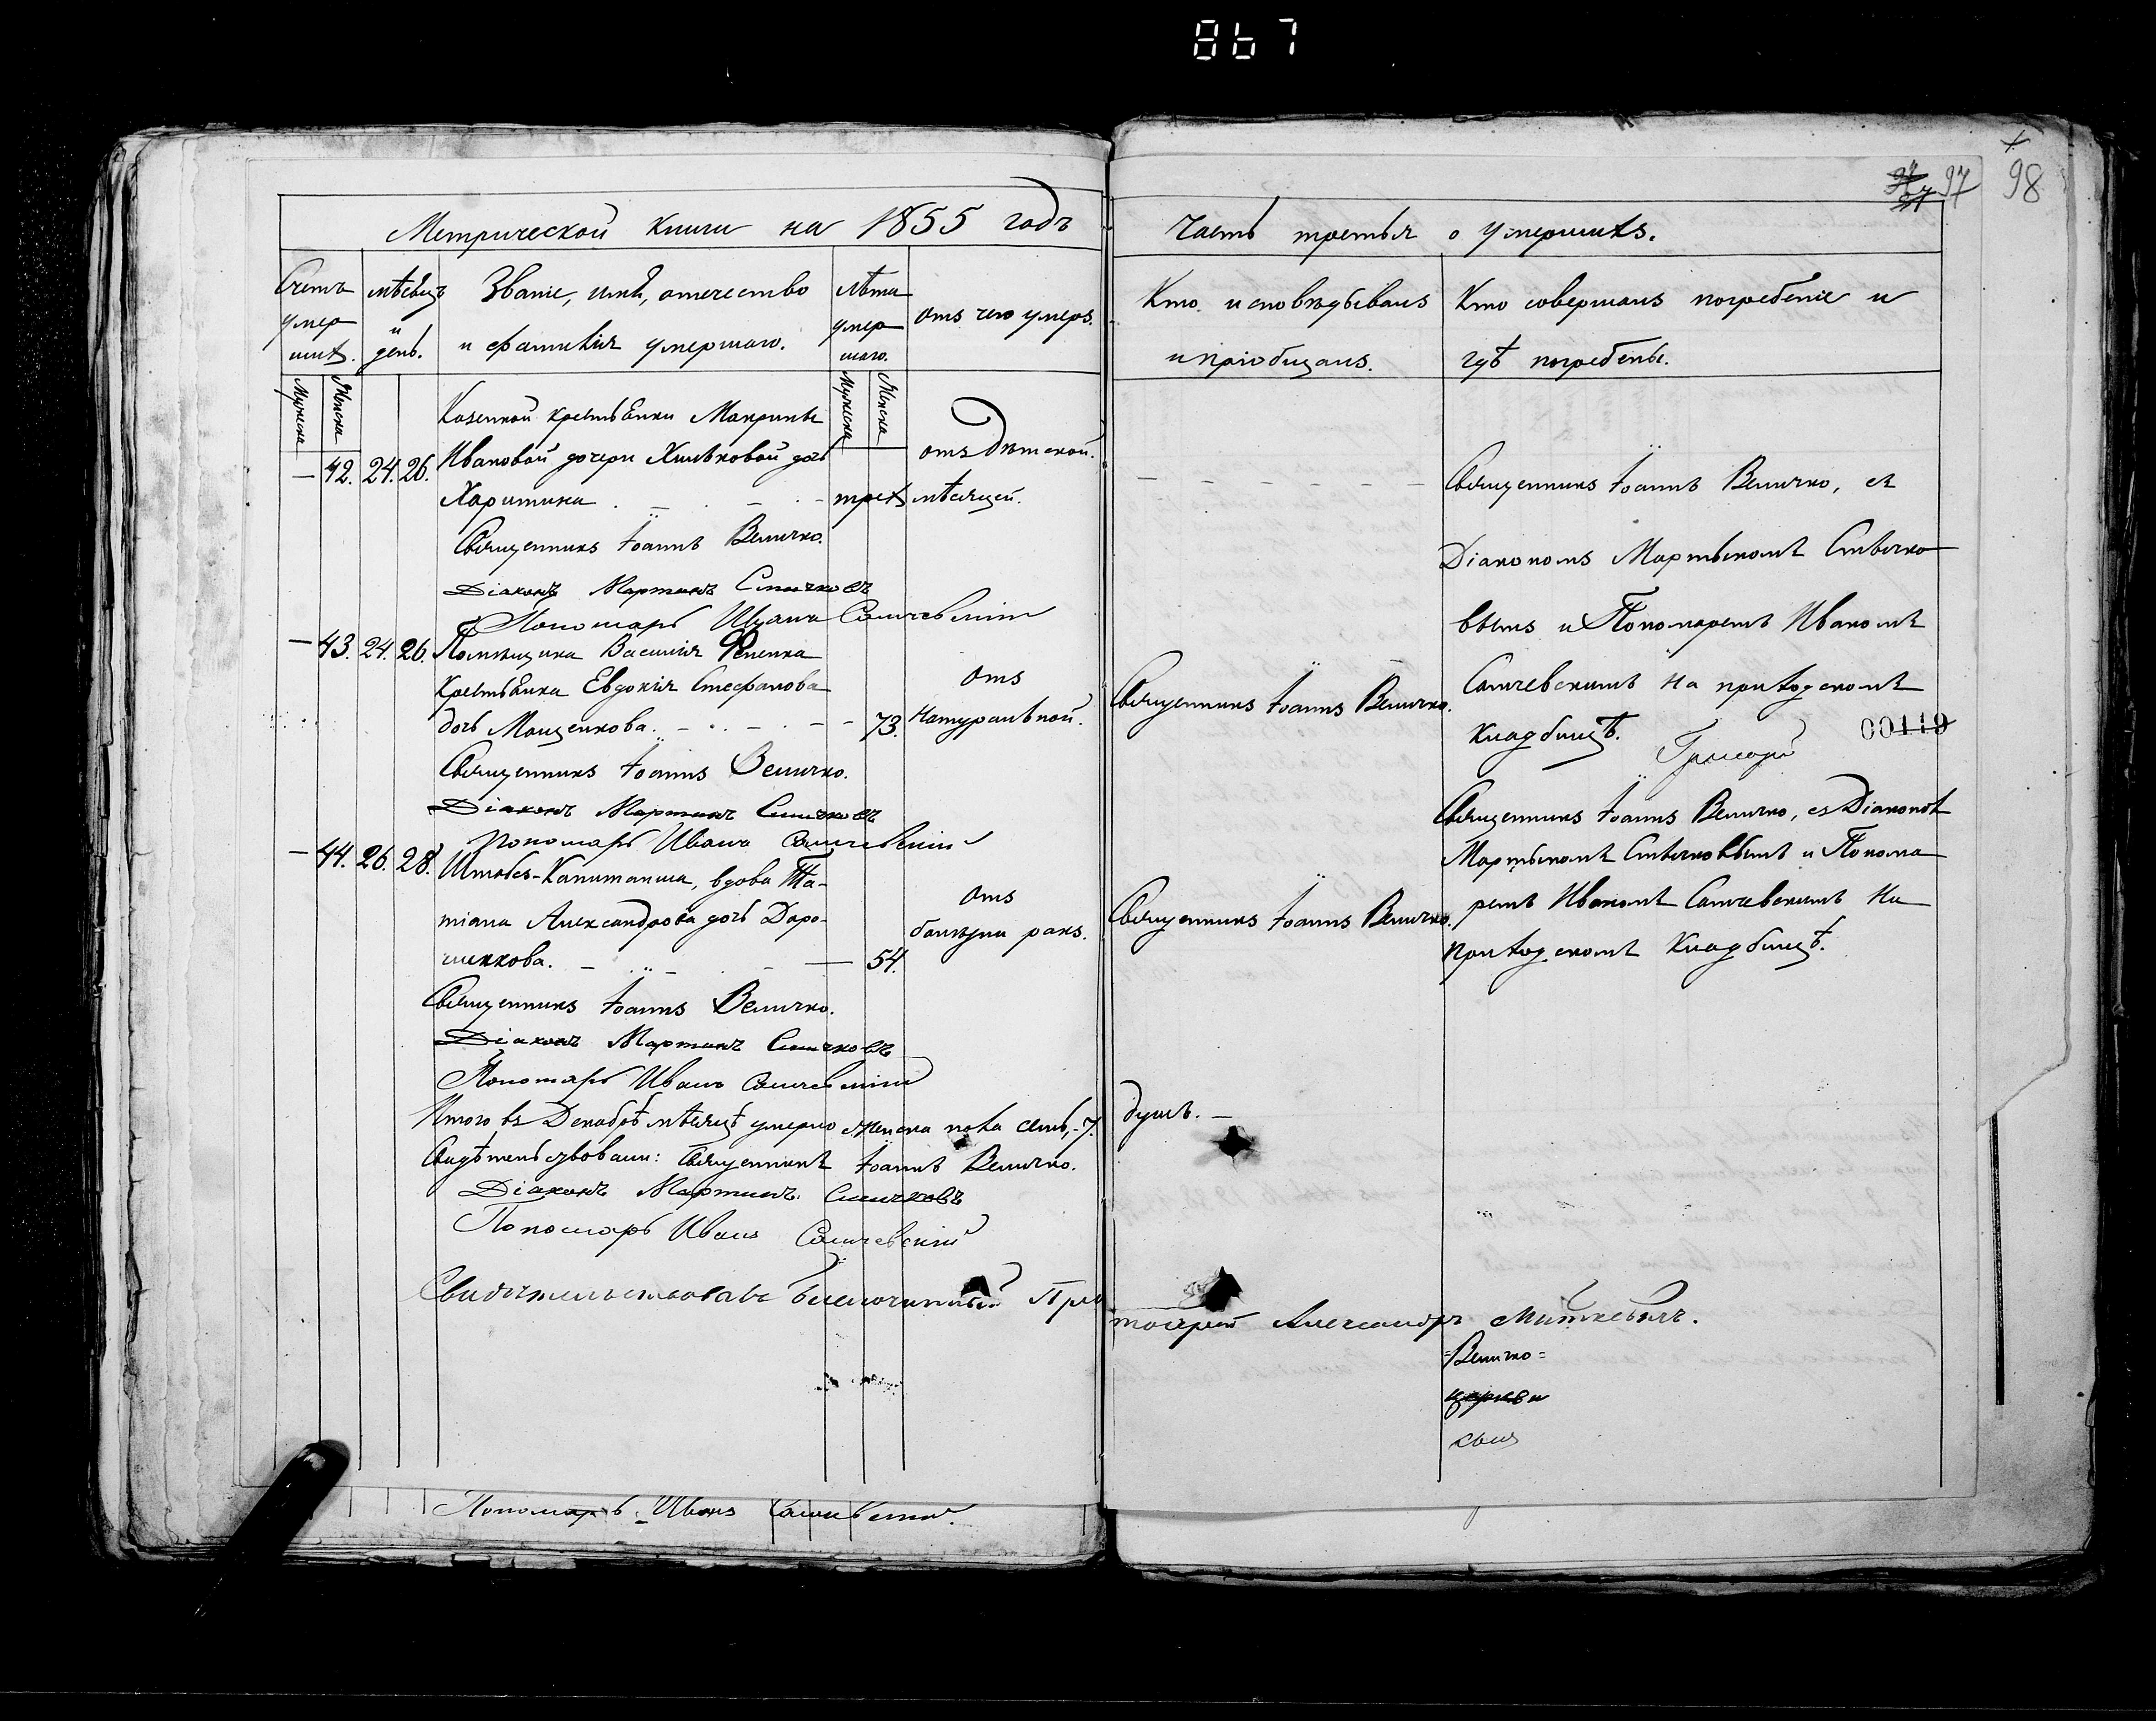 867
98
97
Метрической книги на 1855 годъ
Часть третья о умершихъ.
Счетъ умершихъ.
мѣсяцъ и день.
Званіе, имя, отечество
и фамилія умершаго.
лѣта умершаго.
отъ чего умеръ.
Кто исповѣдывалъ
и пріобщалъ.
Кто совершалъ погребеніе и
гдѣ погребены.
Мужеска
Женска
Мужеска
Женска
Казенной крестьянки Макрины
— 42. 24. 26. Ивановой дочери Хильковой дочь
Харитина трехъ мѣсяцей.
отъ Дѣтской.
Священникъ Іоаннъ Величко.
Діаконъ Мартинъ
Пономарь Иванъ
— 43. 24. 26. Помѣщика Василія
крестьянка Евдокія Стефанова
дочь Мащенкова. 73.
отъ
Натуральной.
Священникъ Іоаннъ Величко.
Священникъ Іоаннъ Величко.
Діаконъ Мартинъ
Пономарь Иванъ
— 44. 26. 28. Штабсъ-Капитанша, вдова Та-
тіана Александрова дочь Доро-
шенкова. 54.
отъ
болѣзни ракъ.
Священникъ Іоаннъ Величко.
Священникъ Іоаннъ Величко.
Діаконъ Мартинъ
Пономарь Иванъ
Итого въ Декабрѣ мѣсяцѣ умерло женска пола семь,-7.
душъ. —
Свидѣтельствовали: Священникъ Іоаннъ Величко.
Діаконъ Мартинъ
Пономарь Иванъ
Свидѣтельствовалъ Благочинный Про
тоіерей Александръ Миткевичъ.
Священникъ Іоаннъ Величко, съ
Діакономъ Мартыномъ
вымъ и Пономаремъ Иваномъ
на приходскомъ
Кладбищѣ.
Григорій
00119
Священникъ Іоаннъ Величко, съ Діакономъ
Мартыномъ и Понома
ремъ Иваномъ на
приходскомъ Кладбищѣ.
=Величко=
церкви
Пономарь Иванъ